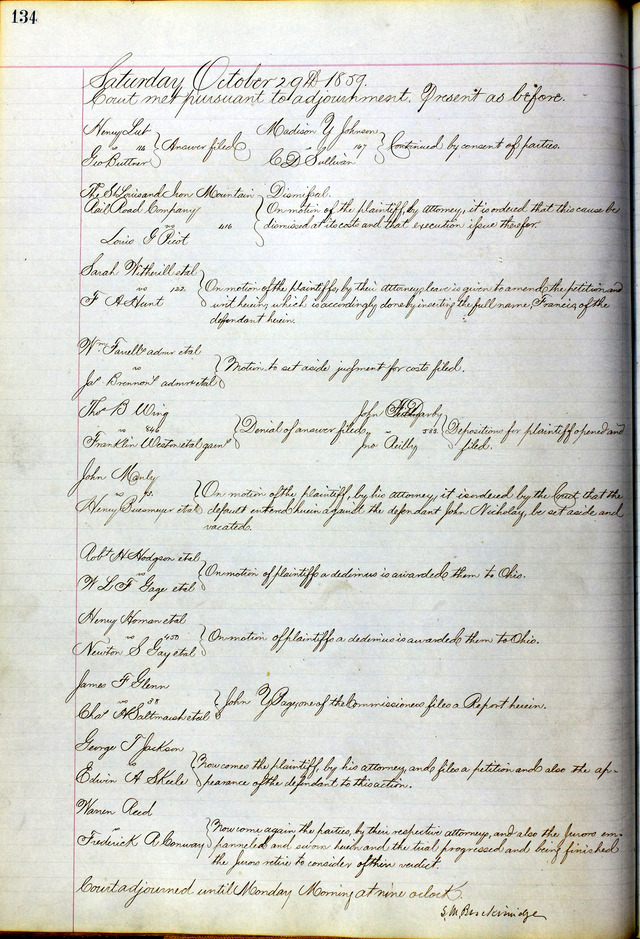 134
Saturday October 29th 1859.
Court met pursuant to adjournment. Present as before.
Henry Lut
vs 116 Answer filed
Geo Buttner
Madison Y Johnson
vs 167 Continued by consent of parties.
C D Sullivan
The St Louis and Iron Mountain Dismissal.
Rail Road Company On motion of the plaintiff, by attorney, it is ordered that this cause be
vs 416 dismissed at its costs and that execution issue therefor.
Louis G Picot
Sarah et al
vs 122 On motion of the plaintiffs, by their attorney, leave is given to amend the petition and
F A Hunt writ herein, which is accordingly done by inserting the full name, Francis, of the
defendant herein.
Wm Farrell admr et al
vs Motion to set aside judgment for costs filed.
Jas Brennons admr et al
Thos B Wing
vs 846 Denial of answer filed.
Franklin Western et al garns
John Darby
vs 533 Depositions for plaintiff opened and
Jno Reilly filed.
John Manley
vs On motion of the plaintiff, by his attorney, it is ordered by the Court, that the
Henry Buemeyer et al default entered herein against the defendant John Nicholay, be set aside and
vacated.
Robt H Hodgson et al
vs On motion of plaintiffs a dedimus is awarded them to Ohio.
W L F Gage et al
Henry Homan et al
vs 450 On motion of plaintiffs a dedimus is awarded them to Ohio.
Newton S Gay et al
James F Glenn
vs 38 John Y Page, one of the Commissioners files a Report herein.
Chas H Saltmarsh et al
George T Jackson
vs Now comes the plaintiff, by his attorney, and files a petition and also the ap-
Edwin A Skeele pearance of the defendant to this action.
Warren Reed
vs Now come again the parties, by their respective attorneys, and also the Jurors em-
Frederick A Conway panneled and sworn herein and the trial progressed and being finished
the Jurors retire to consider of their verdict.
Court adjourned until Monday Morning at nine o'clock.
S. M. Breckinridge